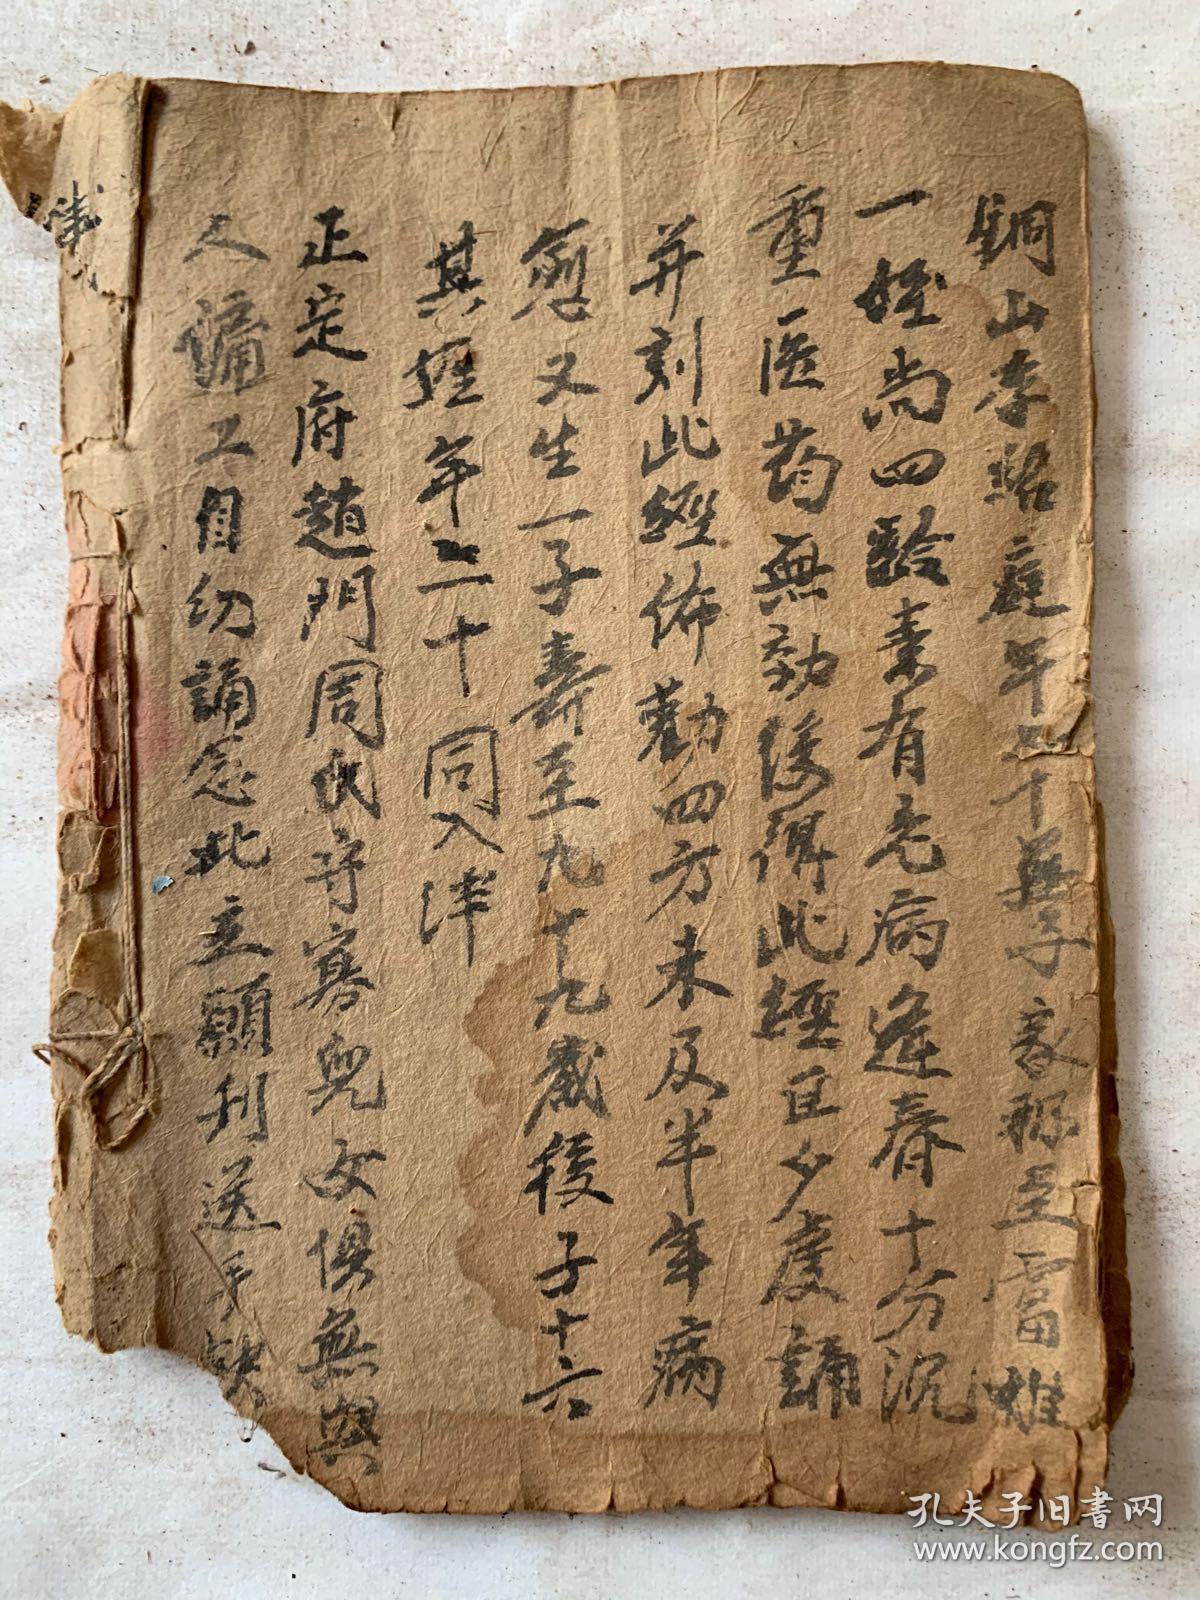 銅山李 庭年七十無子家称至富惟
一姪尚四齡素有老病逢春十分沉
重医药無効後得此經旦夕虔誦
并刻此經佈勸四方未及半年病
愈又生一子壽至九十九歲後子十六
其姪年二十同入泮
正定府趙門周氏守寡兒女俱無與
人傭工自幼誦念此立願刊送手
孔夫子旧书网
www.kongfz.com